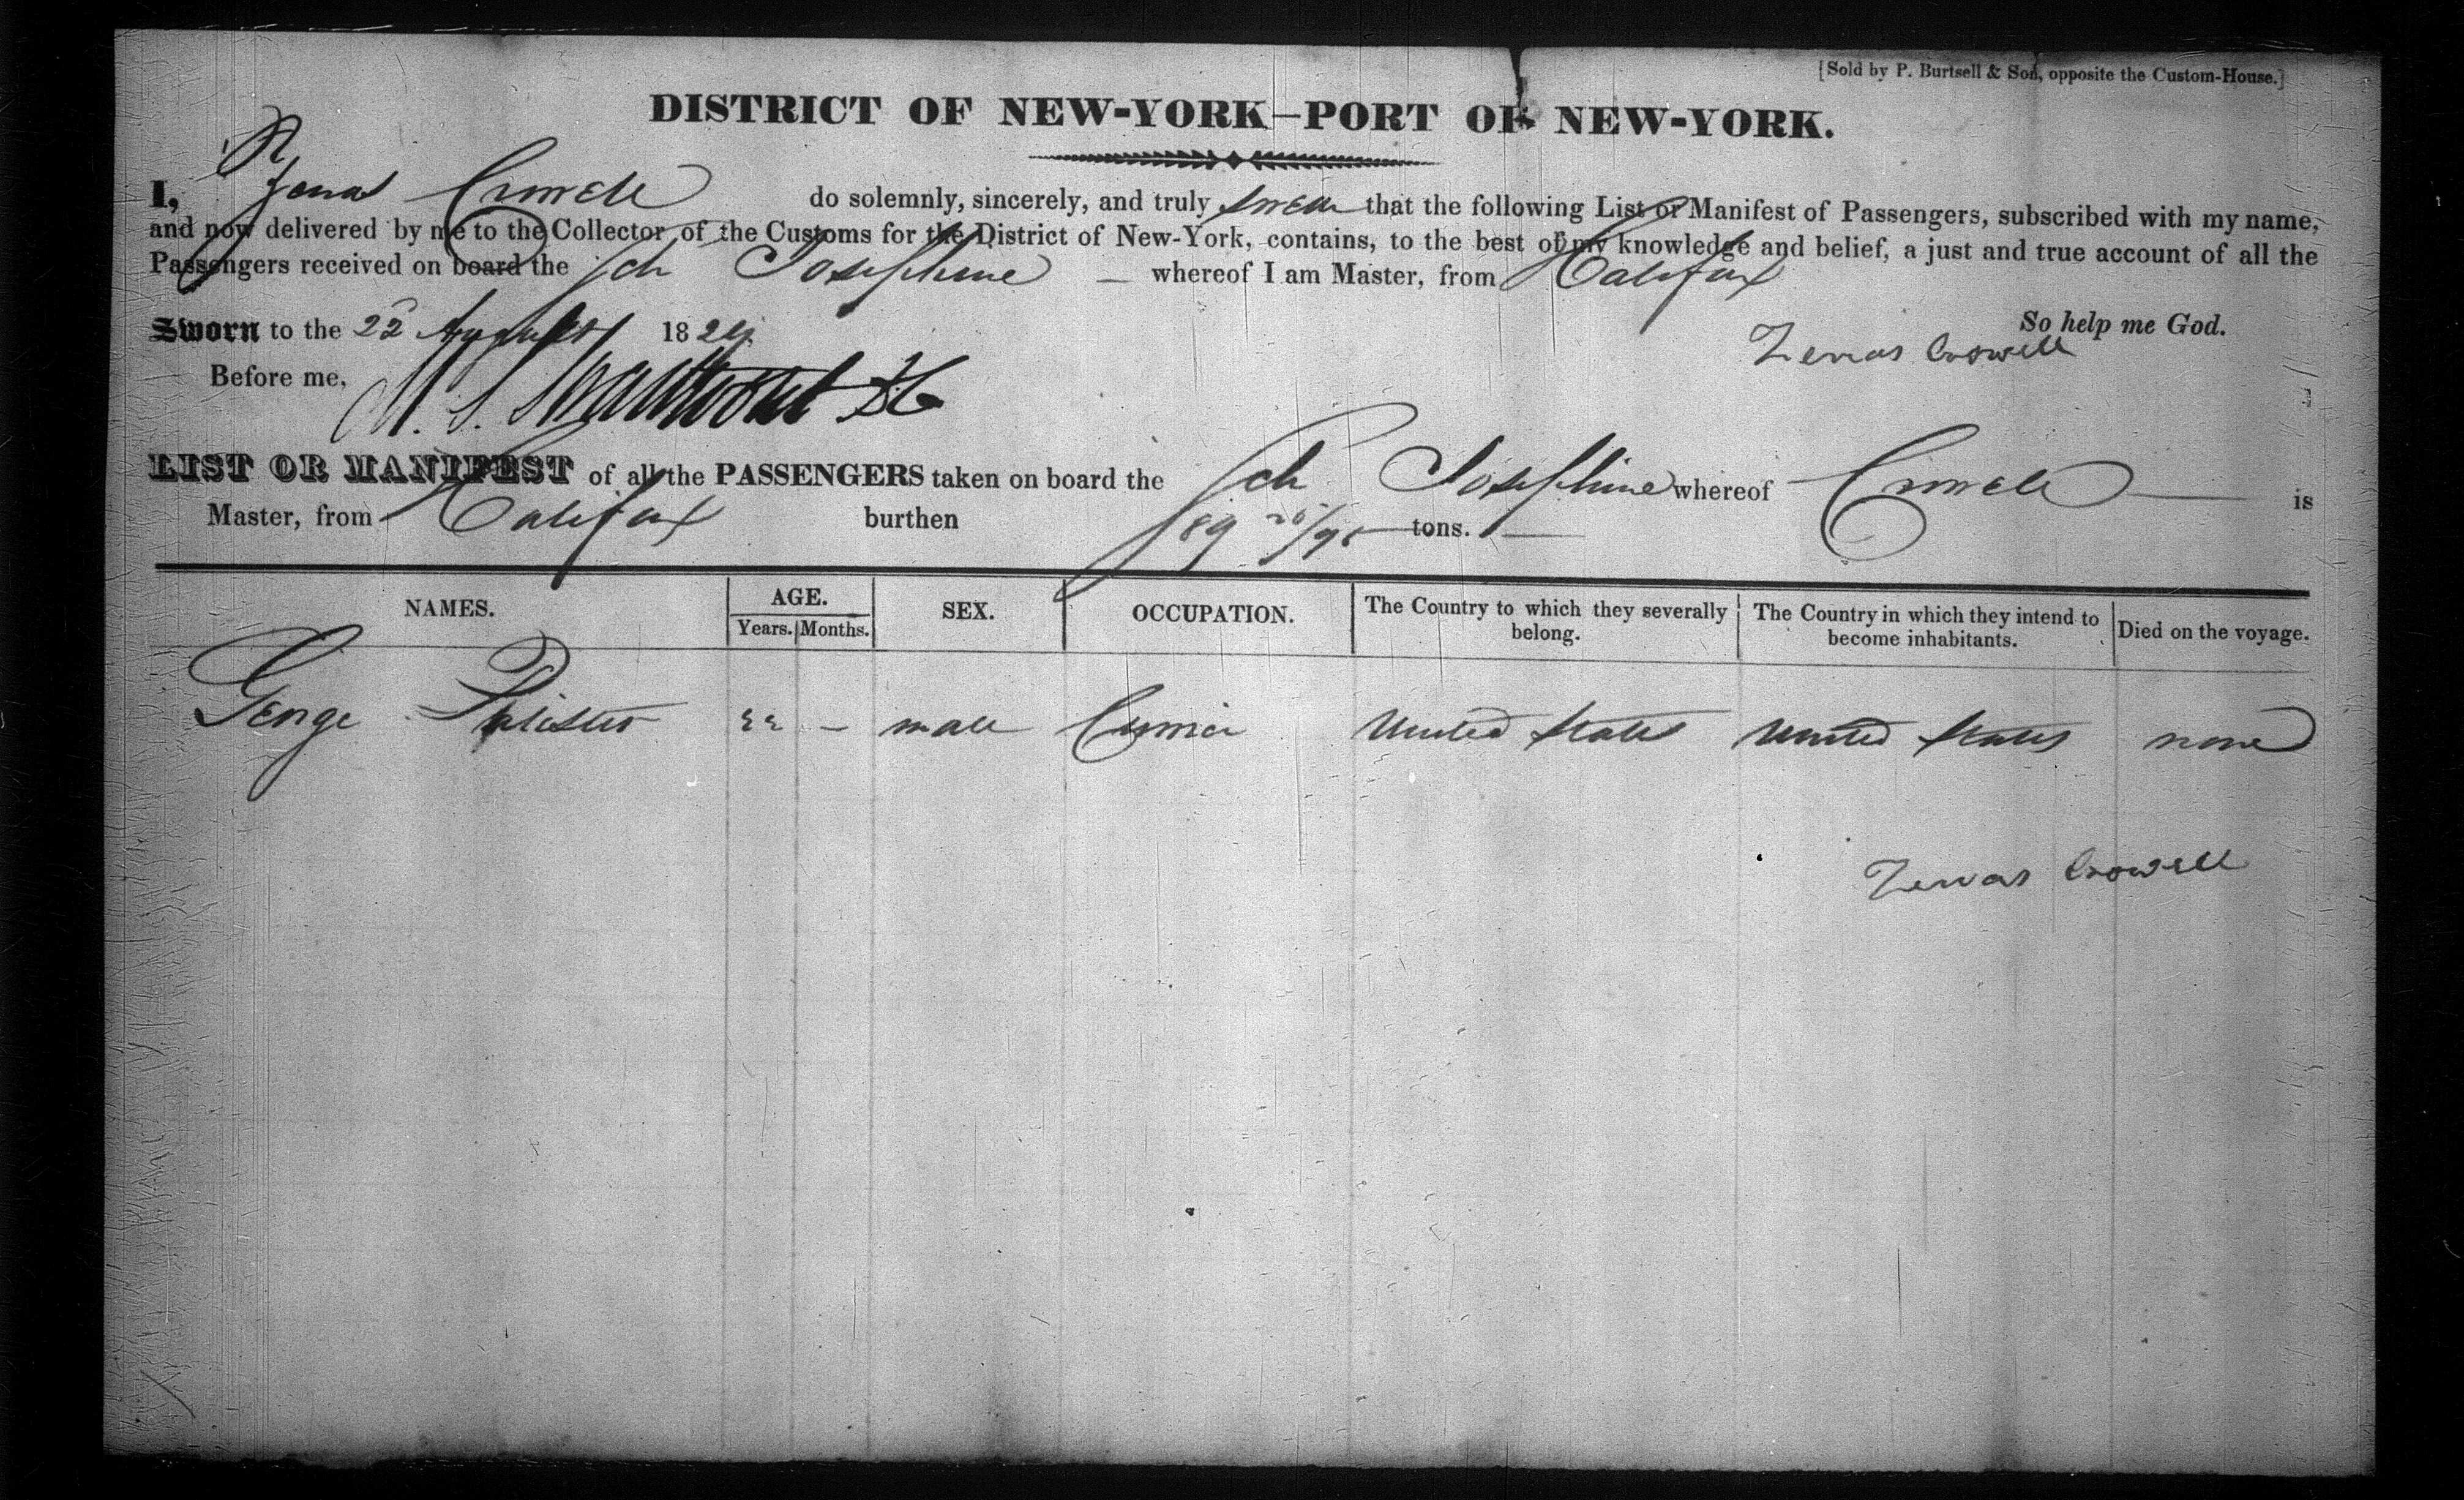 [Sold by P. Burtsell & Son, opposite the Custom-House.]
DISTRICT OF NEW-YORK—PORT OF NEW-YORK.
I, Zenas Crowell do solemnly, sincerely, and truly swear that the following List or Manifest of Passengers, subscribed with my name,
and now delivered by me to the Collector of the Customs for the District of New-York, contains, to the best of my knowledge and belief, a just and true account of all the
Passengers received on board the Sch Josephine whereof I am Master, from Halifax
So help me God.
Sworn to the 22 August 1829
Zenas Crowell
Before me,
LIST OR MANIFEST of all the PASSENGERS taken on board the Sch Josephine whereof Crowell is
Master, from Halifax burthen 89 tons.
NAMES. AGE. SEX. OCCUPATION. The Country to which they severally belong. The Country in which they intend to become inhabitants. Died on the voyage.
Years. Months.
George 22 – male United States United States none
Zenas Crowell